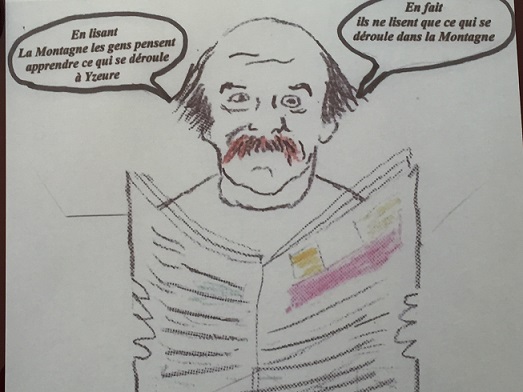 En lisant
La Montagne les gens pensent
apprendre ce qui se déroule
à Yzeure
En fait
ils ne lisent que ce qui se
déroule dans la Montagne